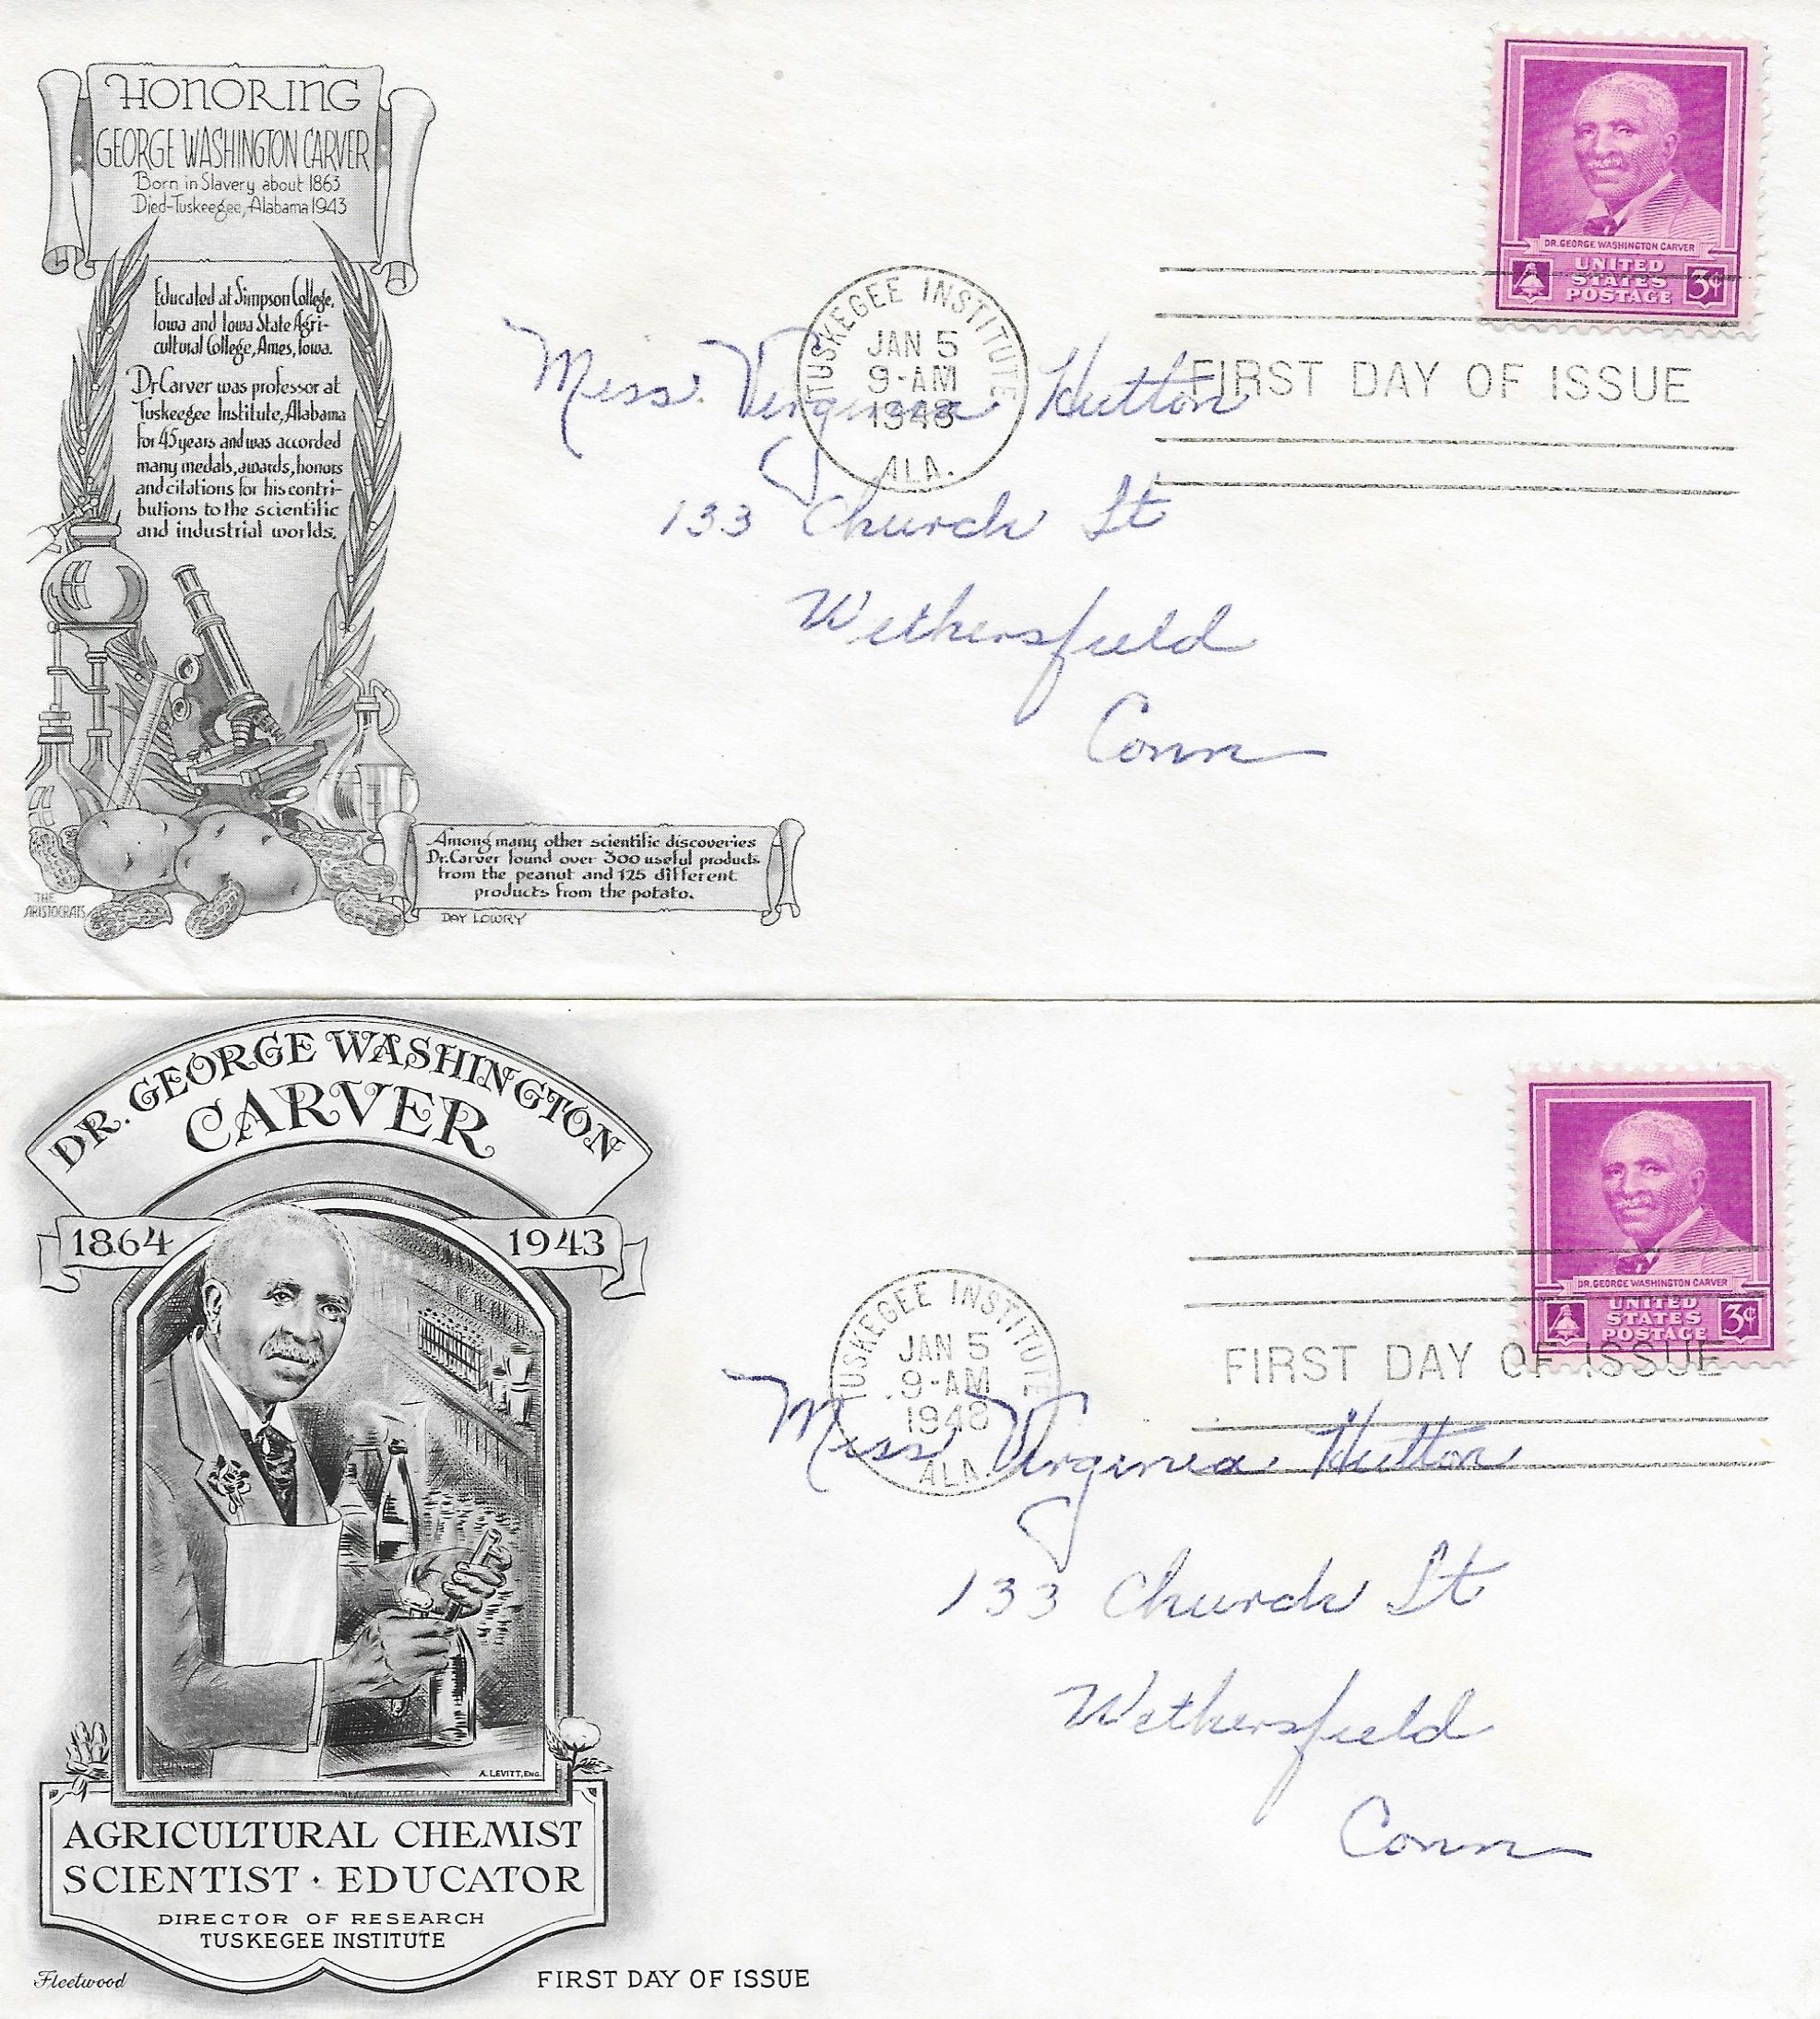 HONORING
GEORGE WASHINGTON CARVER
Born in Slavery about 1863
Died-Tuskeegee, Alabama 1943
Educated at Simpson College,
Iowa and Iowa State Agri-
cultural College, Ames, Iowa.
Dr. Carver was professor at
Tuskeegee Institute, Alabama
for 45 years and was accorded
many medals, awards, honors
and citations for his contri-
butions to the scientific
and industrial worlds.
Among many other scientific discoveries
Dr. Carver found over 300 useful products
from the peanut and 125 different
products from the potato.
THE
ARISTOCRATS
DAY LOWRY
DR. GEORGE WASHINGTON CARVER
UNITED
STATES
POSTAGE
3¢
TUSKEGEE INSTITUTE
JAN 5
9-AM
1948
ALA.
FIRST DAY OF ISSUE
Miss. Virginia Hutton
133 Church St
Wethersfield
Conn
DR. GEORGE WASHINGTON
CARVER
1864 1943
A. LEVITT, ENG.
AGRICULTURAL CHEMIST
SCIENTIST · EDUCATOR
DIRECTOR OF RESEARCH
TUSKEGEE INSTITUTE
Fleetwood
FIRST DAY OF ISSUE
DR. GEORGE WASHINGTON CARVER
UNITED
STATES
POSTAGE
3¢
TUSKEGEE INSTITUTE
JAN 5
9-AM
1948
ALA.
FIRST DAY OF ISSUE
Miss Virginia Hutton
133 Church St
Wethersfield
Conn